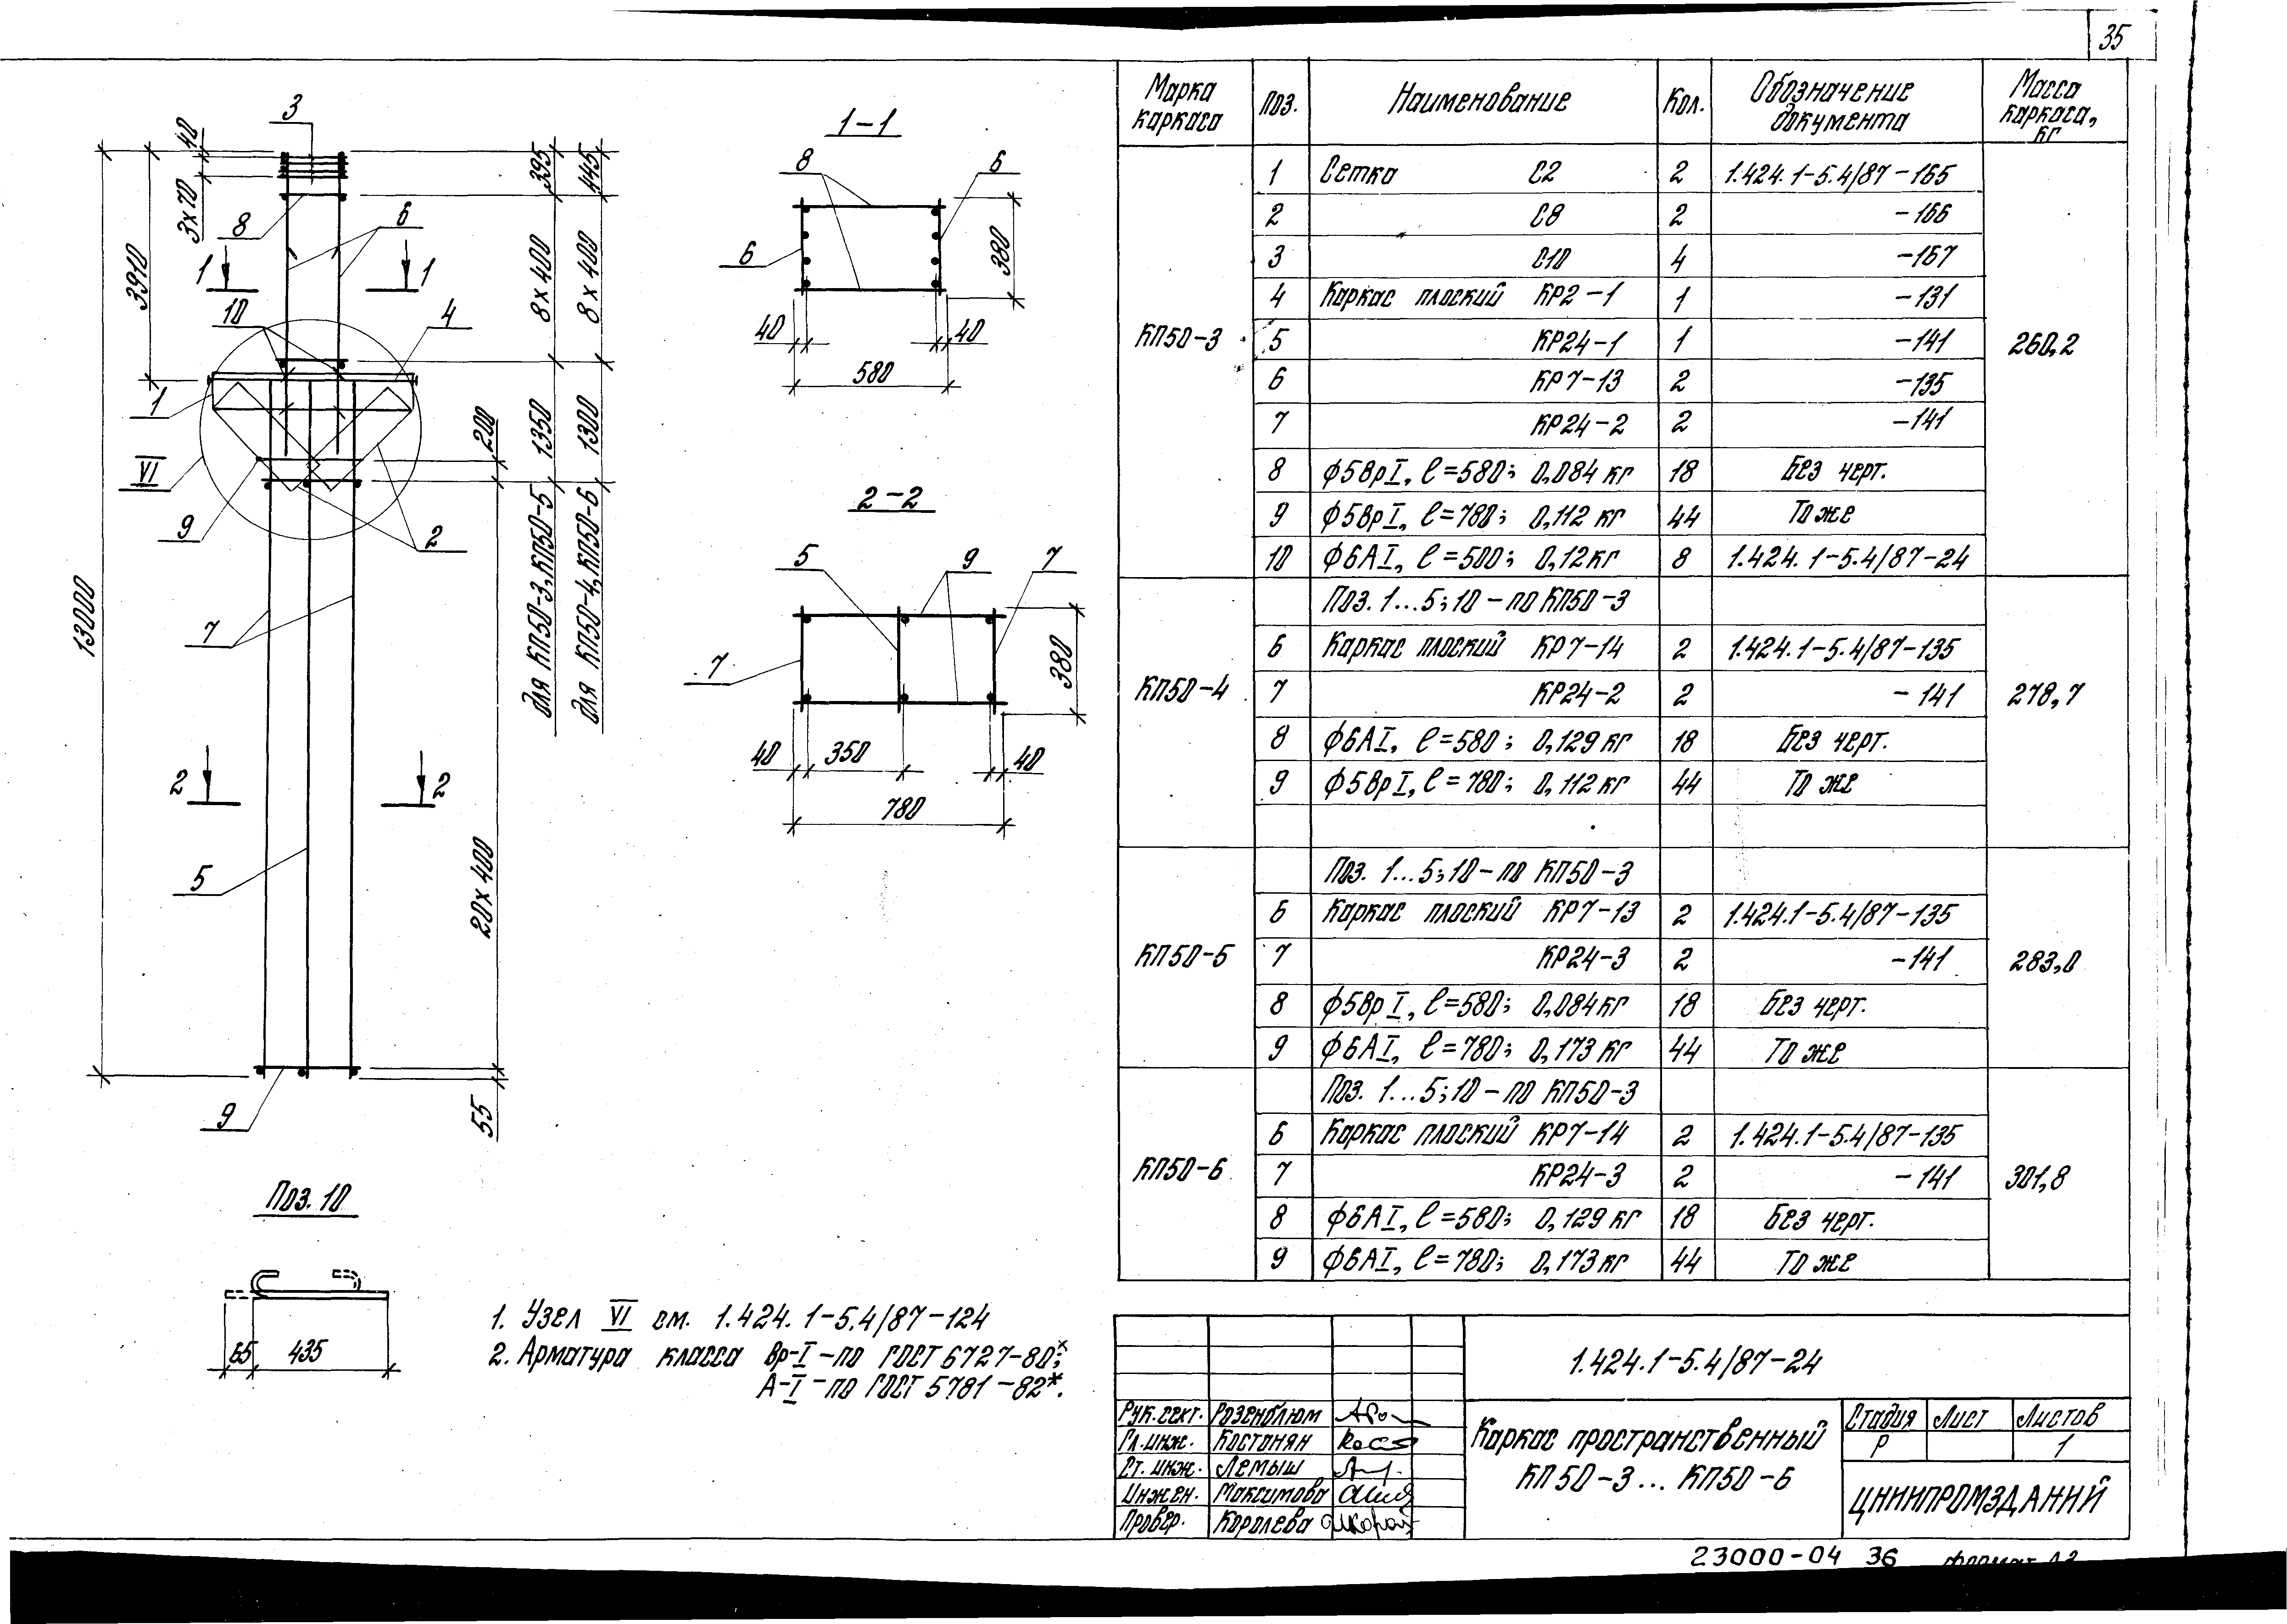 35
3
40
3х70
3910
13000
8
6
1
1
10
4
1
VI
9
2
7
2
2
5
9
395
8х400
1350
для КП50-3, КП50-5
445
8х400
1300
для КП50-4, КП50-6
200
20х400
55
1-1
8
6
6
380
40
40
580
2-2
5
9
7
7
380
40
350
40
780
Поз. 10
65
435
1. Узел VI см. 1.424.1-5.4/87-124
2. Арматура класса Вр-I - по ГОСТ 6727-80*;
А-I - по ГОСТ 5781-82*.
Марка каркаса Поз. Наименование Кол. Обозначение документа Масса каркаса, кг
КП50-3 260,2
1 Сетка С2 2 1.424.1-5.4/87-165
2 С8 2 -166
3 С10 4 -167
4 Каркас плоский КР2-1 1 -131
5 КР24-1 1 -141
6 КР7-13 2 -135
7 КР24-2 2 -141
8 ф5ВрI, ℓ=580; 0,084 кг 18 Без черт.
9 ф5ВрI, ℓ=780; 0,112 кг 44 То же
10 ф6АI, ℓ=500; 0,12кг 8 1.424.1-5.4/87-24
КП50-4 278,7
Поз. 1...5;10 - по КП50-3
6 Каркас плоский КР7-14 2 1.424.1-5.4/87-135
7 КР24-2 2 -141
8 ф6АI, ℓ=580; 0,129 кг 18 Без черт.
9 ф5ВрI, ℓ=780; 0,112 кг 44 То же
КП50-5 283,0
Поз. 1...5;10 - по КП50-3
6 Каркас плоский КР7-13 2 1.424.1-5.4/87-135
7 КР24-3 2 -141
8 ф5ВрI, ℓ=580; 0,084 кг 18 Без черт.
9 ф6АI, ℓ=780; 0,173 кг 44 То же
КП50-6 301,8
Поз. 1...5;10 - по КП50-3
6 Каркас плоский КР7-14 2 1.424.1-5.4/87-135
7 КР24-3 2 -141
8 ф6АI, ℓ=580; 0,129 кг 18 Без черт.
9 ф6АI, ℓ=780; 0,173 кг 44 То же
1.424.1-5.4/87-24
Рук.сект. Розенблюм
Гл.инж. Костанян
Ст. инж. Лемыш
Инжен. Максимова
Провер. Королева
Каркас пространственный
КП50-3... КП50-6
Стадия Лист Листов
Р 1
ЦНИИПРОМЗДАНИЙ
23000-04 36 Формат А3